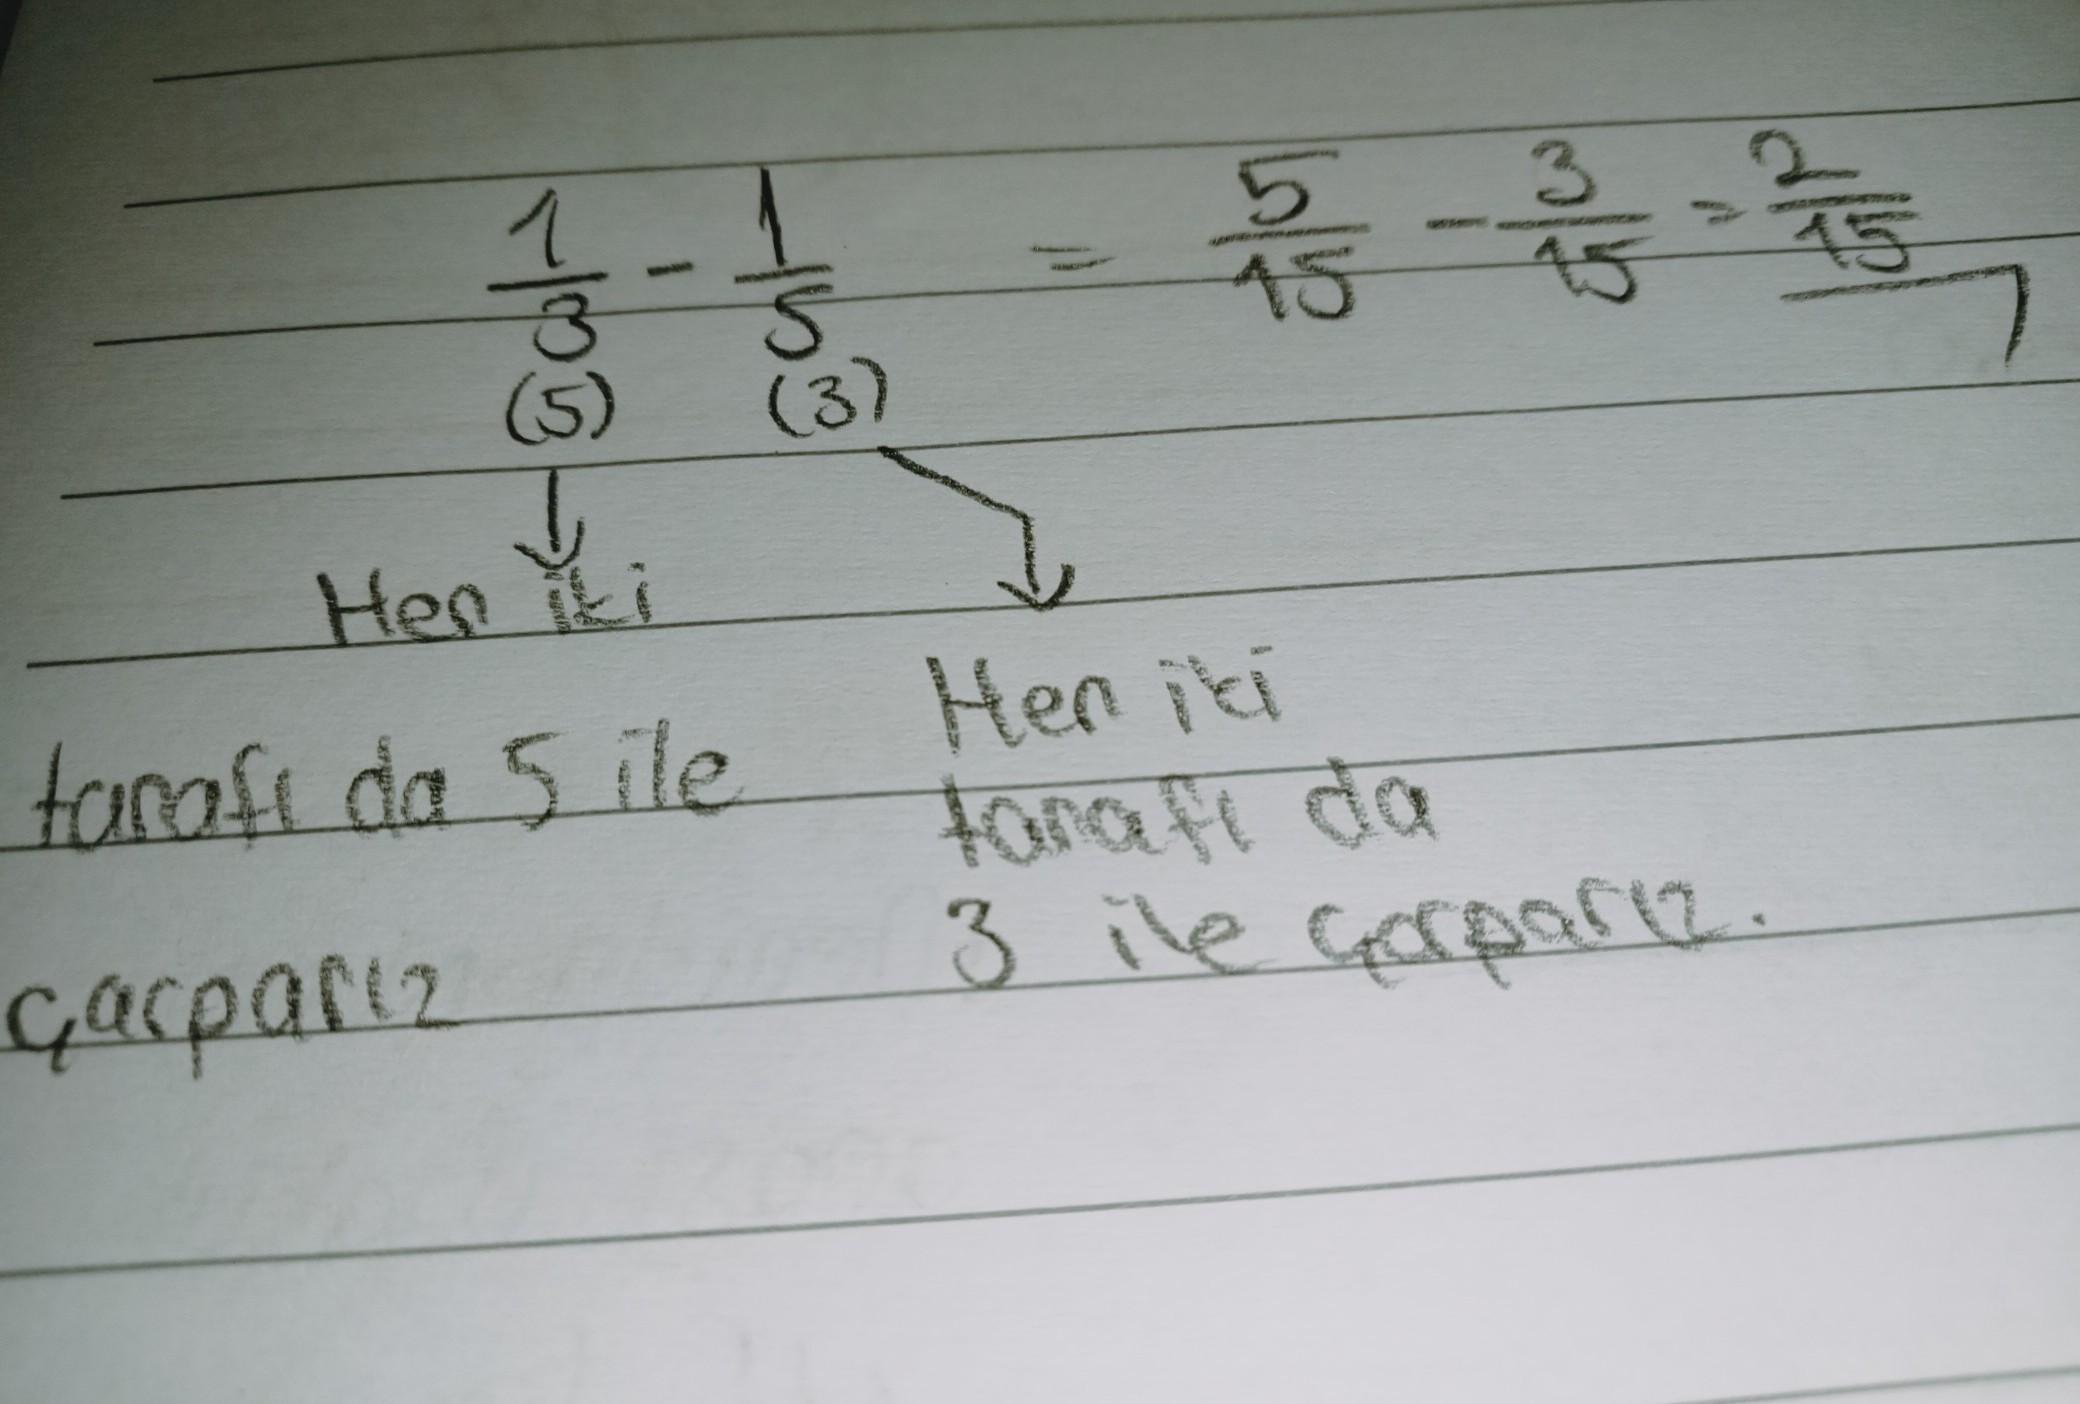 1/3 - 1/5 = 5/15 - 3/15 = 2/15
(5) (3)
Her iki
tarafı da 5 ile
çarparız
Her iki
tarafı da
3 ile çarparız.